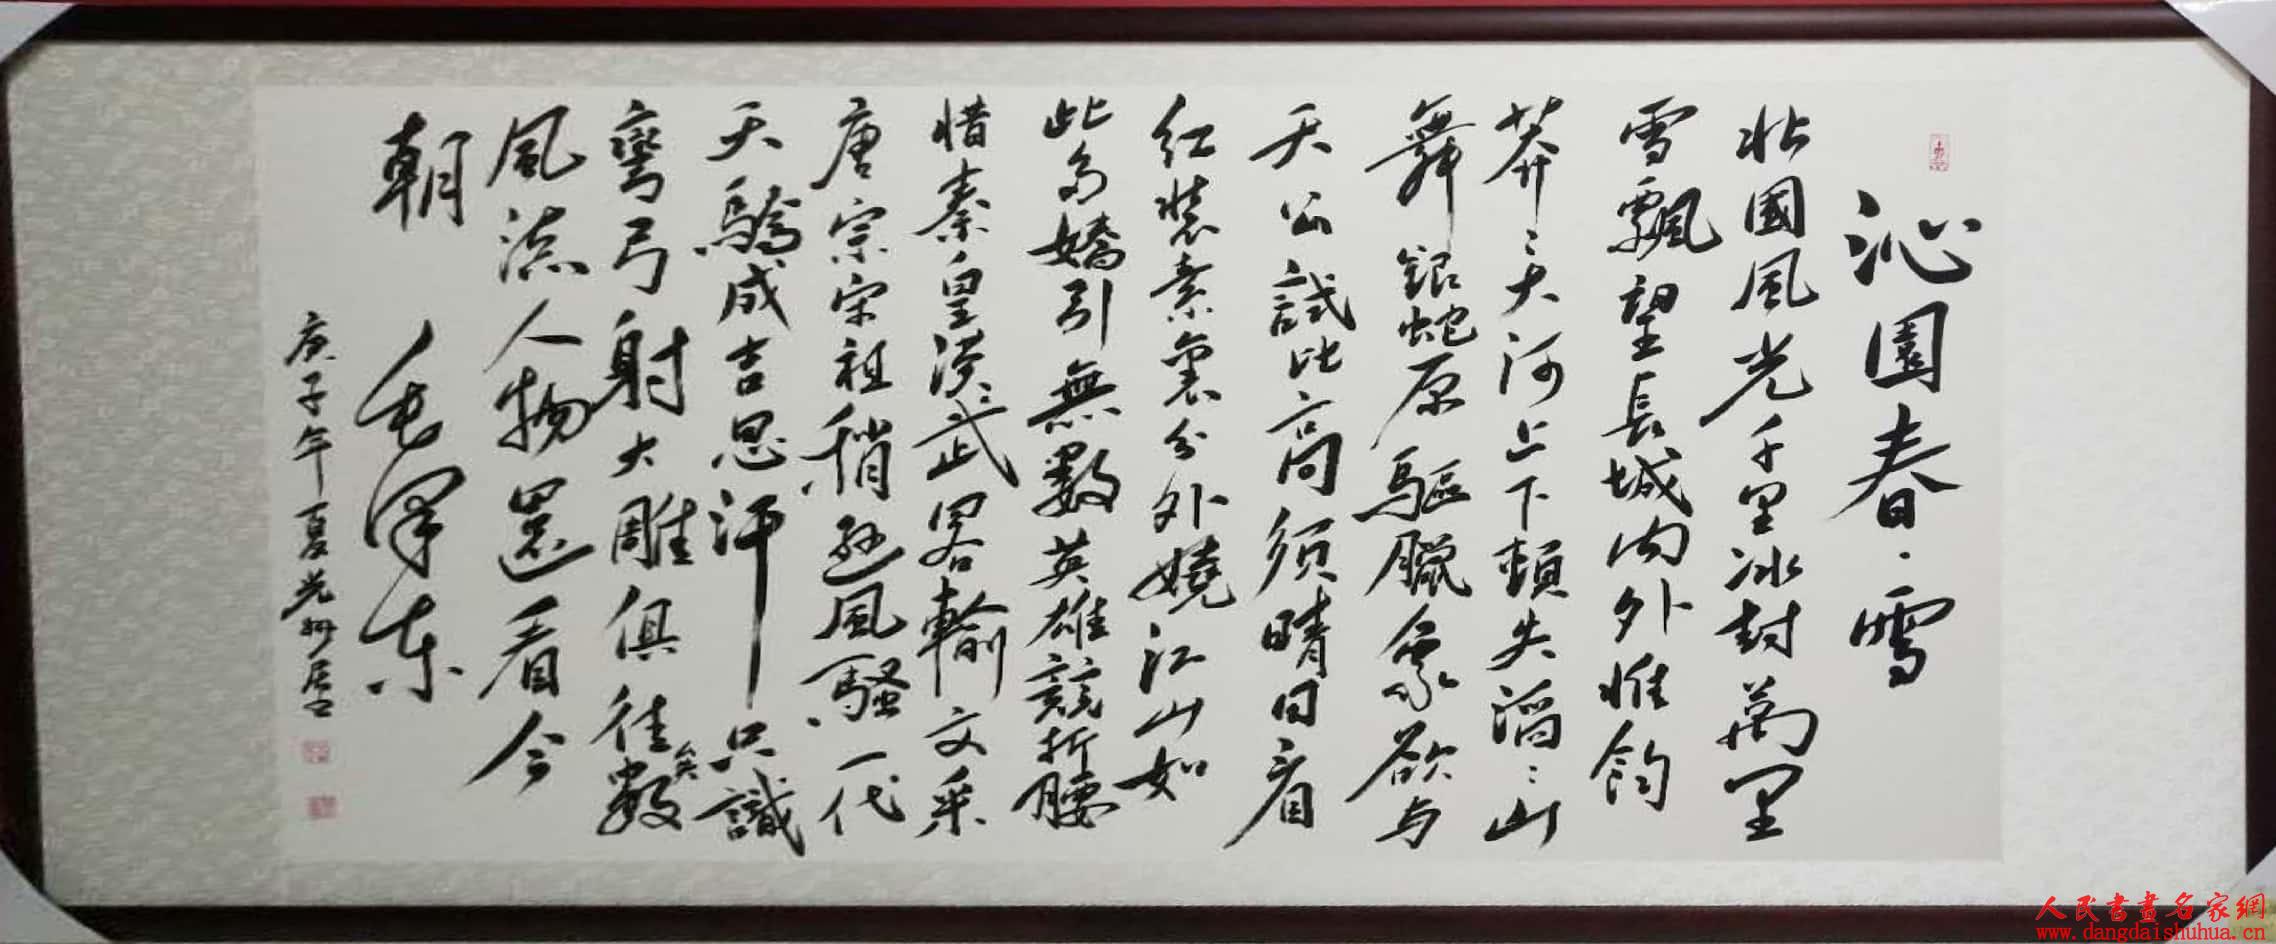 沁園春·雪
北國風光千里冰封萬里
雪飄望長城內外惟餘
莽〻大河上下頓失滔〻山
舞銀蛇原驅臘象欲与
天公試比高須晴日看
紅裝素裹分外嬈江山如
此多嬌引無數英雄競折腰
惜秦皇漢〻武畧輸文采
唐宗宋祖稍遜風騷一代
天驕成吉思汗只識
彎弓射大雕俱往矣數
風流人物還看今
朝 毛澤東
庚子年夏光
人民書畫名家網
www.dangdaishuhua.cn